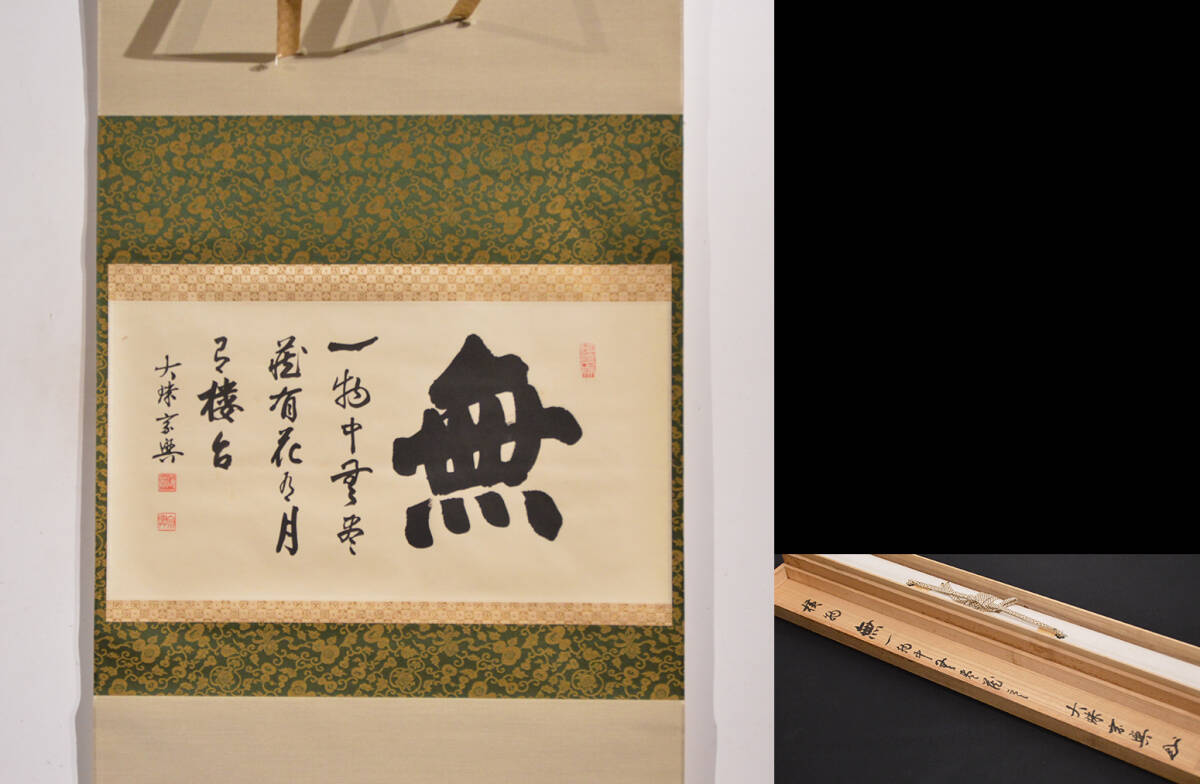 無
一物中無尽
蔵有花有月
有楼台
大珠宗興
横物 無一物中無尽蔵云々 大珠宗興